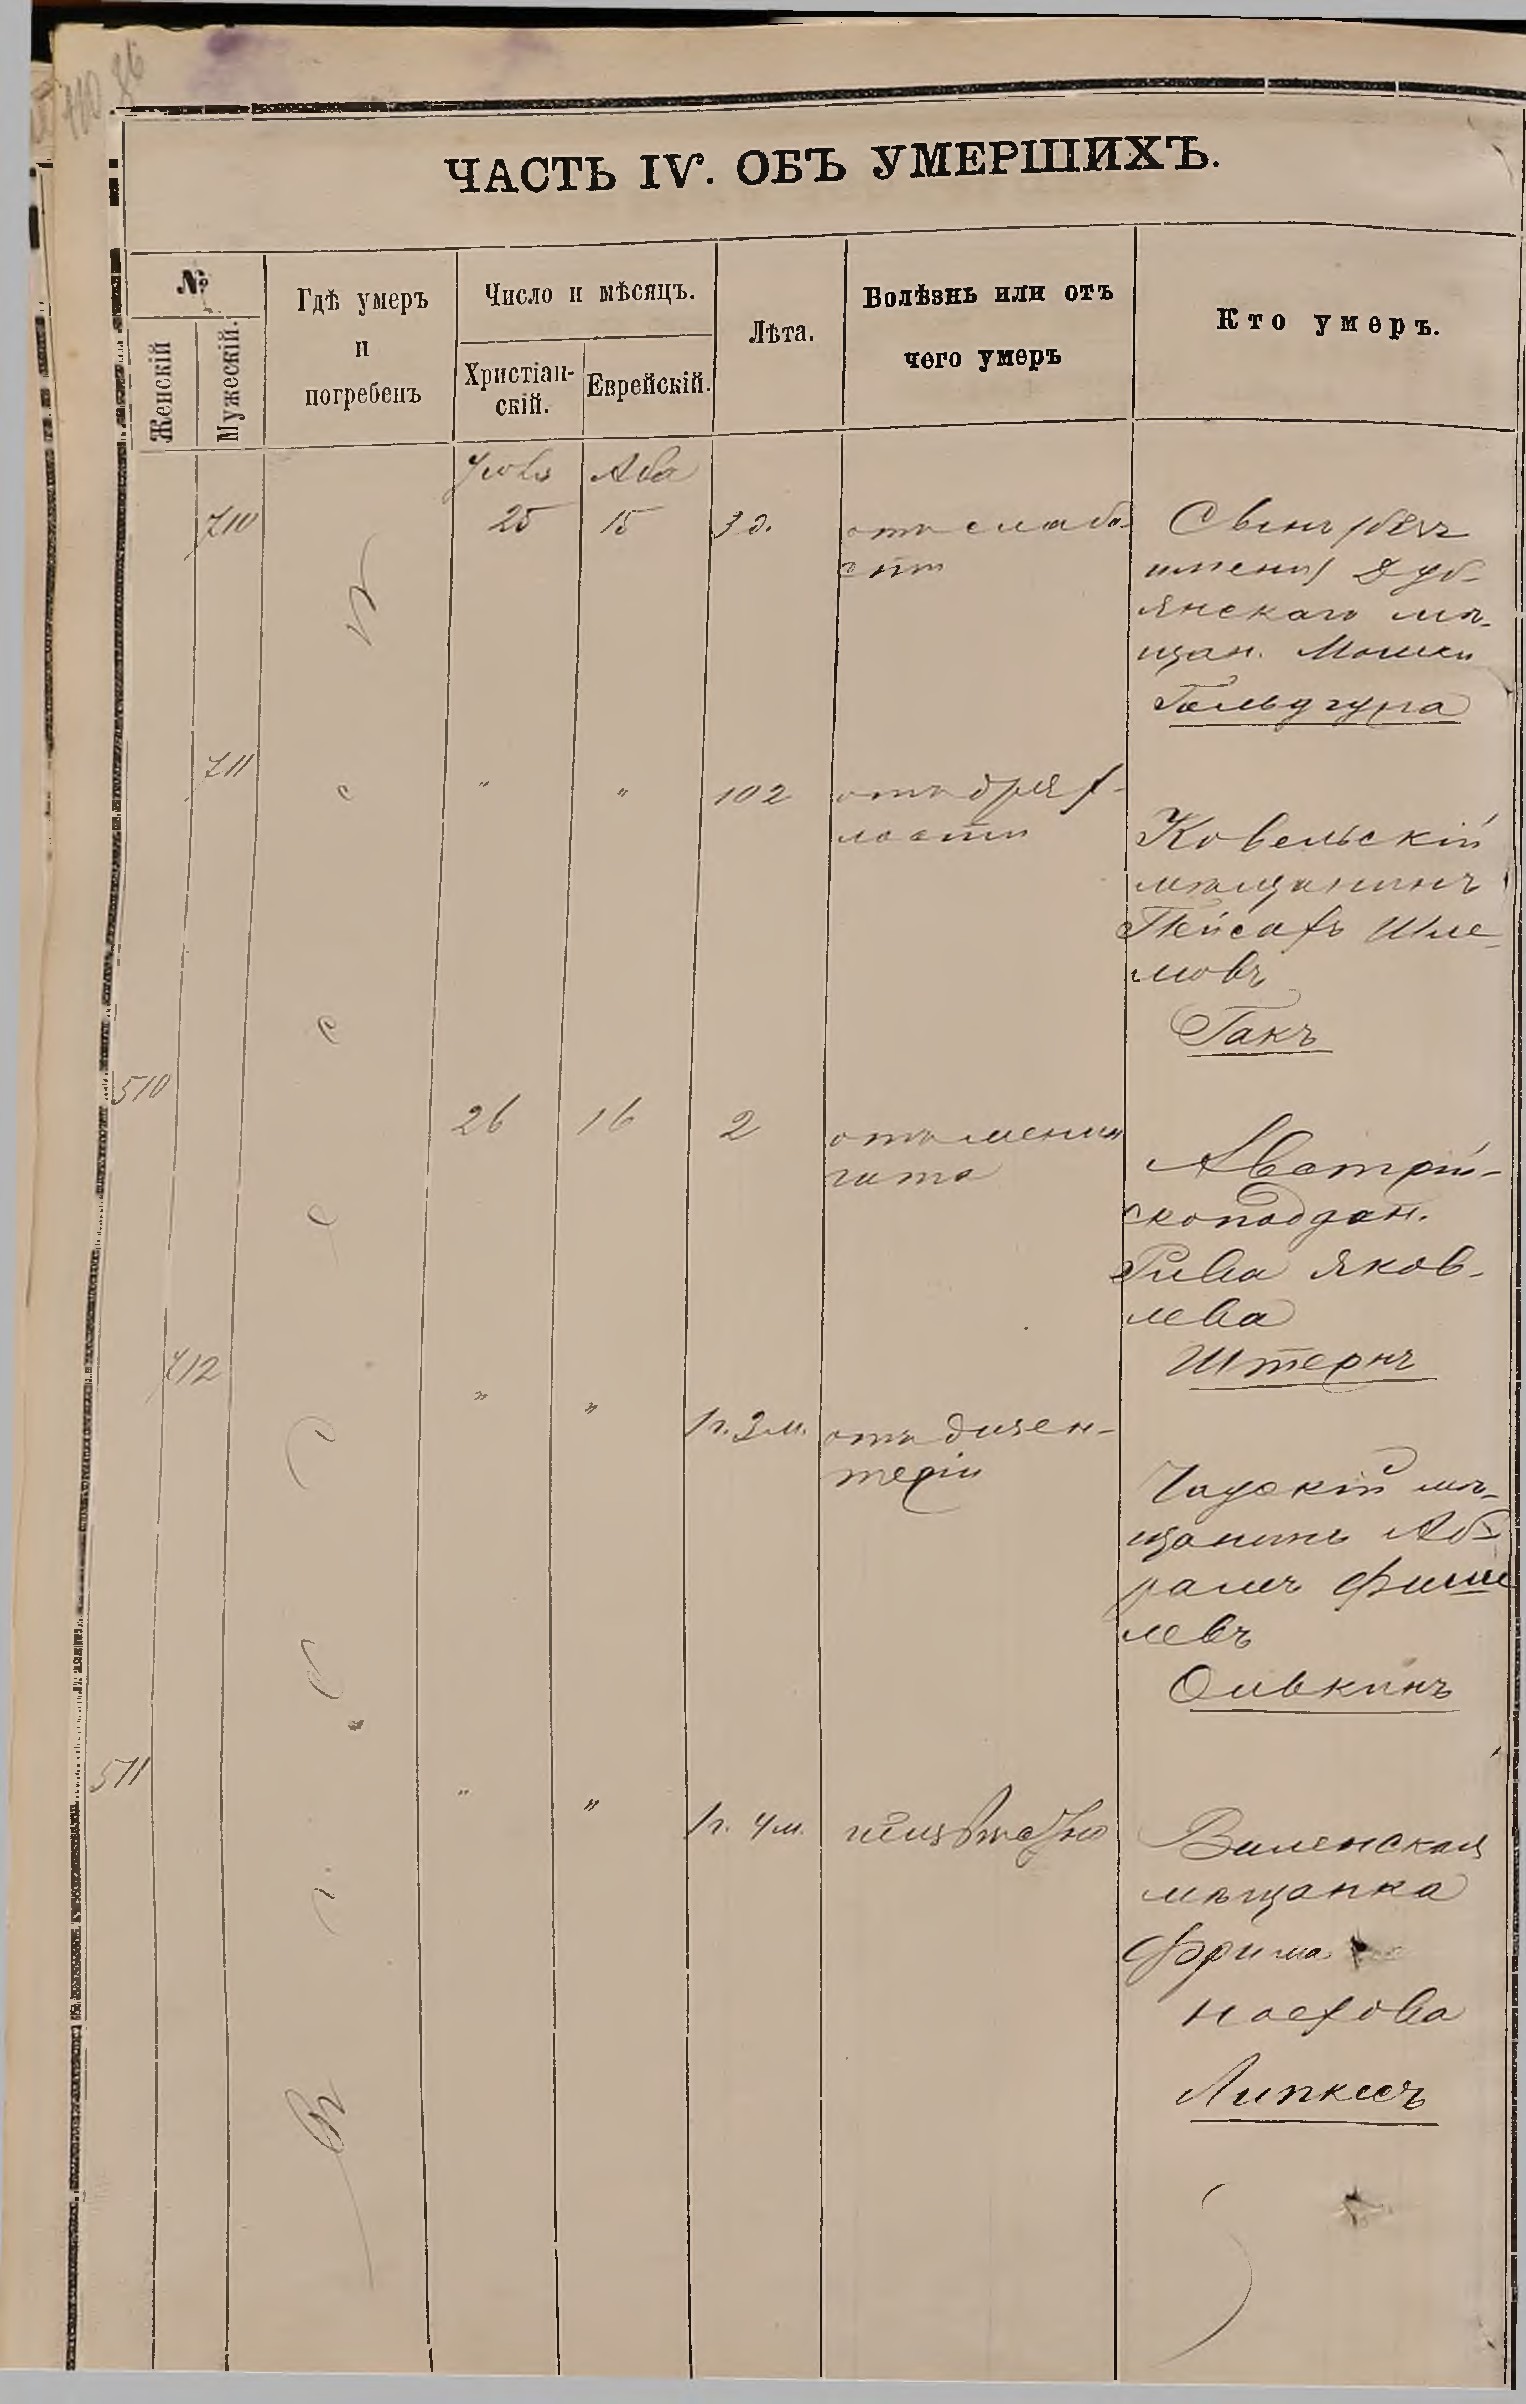 ЧАСТЬ IV. ОБЪ УМЕРШИХЪ.
№
Женскій
Мужескій.
Гдѣ умеръ
и
погребенъ
Число и мѣсяцъ.
Христіан-
скій.
Еврейскій.
Лѣта.
Болѣзнь или отъ
чего умеръ
Кто умеръ.
Іюля Ава
710 25 15 3 д. отъ слабо-
сти
Сынъ (безъ
имени) Дуб-
янскаго мѣ-
щан. Мошки
711 " " 102 отъ дрях-
лости
Ковельскій
мѣщанинъ
Пейсахъ Шле-
мовъ
Гакъ
510 26 16 2 отъ менин
гита
Австрій-
скоподдан.
Рива Яков-
лева
Штернъ
712 " " 1 г. 3 м. отъ дизен-
теріи
Чаускій мѣ-
щанинъ Аб-
рамъ Фише
левъ
Оивкинъ
511 " " 1 г. 4 м.
Виленская
мѣщанка
Фрима
Ноехова
Липкесъ